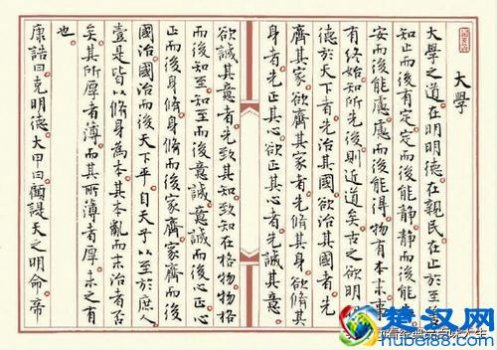 大學
大學之道在明明德在親民在止於至善
知止而後有定定而後能靜靜而後能安
安而後能慮慮而後能得物有本末事
有終始知所先後則近道矣古之欲明明
德於天下者先治其國欲治其國者先
齊其家欲齊其家者先脩其身欲脩其
身者先正其心欲正其心者先誠其意
欲誠其意者先致其知致知在格物物格
而後知至知至而後意誠意誠而後心正心
正而後身脩身脩而後家齊家齊而後
國治國治而後天下平自天子以至於庶人
壹是皆以脩身為本其本亂而末治者否
矣其所厚者薄而其所薄者厚未之有
也
康誥曰克明德大甲曰顧諟天之明命帝
楚汉网
hubei88.com